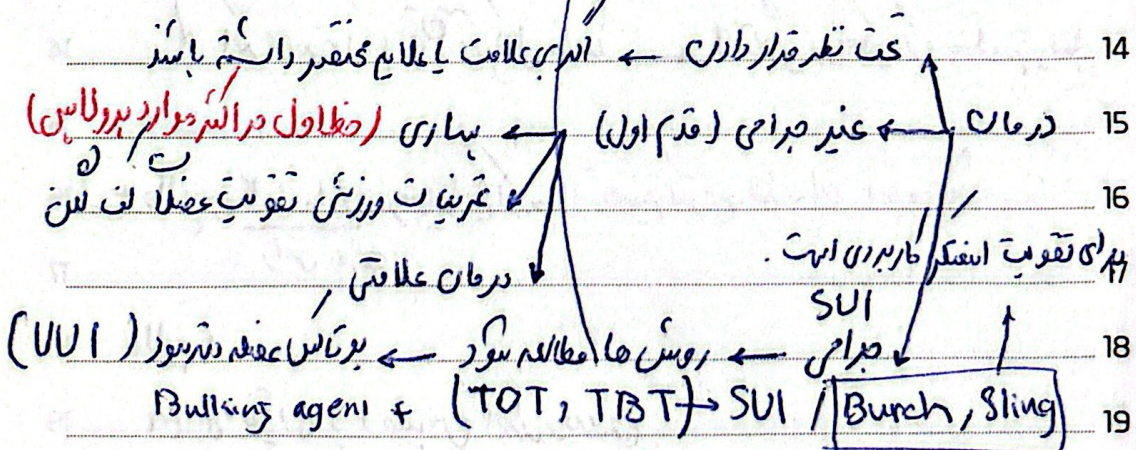 تحت نظر قرار دادن ← اگر بی علامت یا علایم مختصر داشته باشند 14
درمان ← غیر جراحی (قدم اول) ← پساری (خط اول در اکثر موارد پرولاپس) 15
تمرینات ورزشی تقویت عضلات کف لگن 16
برای تقویت اسفنکتر کاربردی است. 17
درمان علامتی
SUI
جراحی ← روش ها مطالعه شود ← بوتاکس عضله دترسور (UUI) 18
Bulking agent + (TOT, TBT) → SUI / Burch, Sling 19